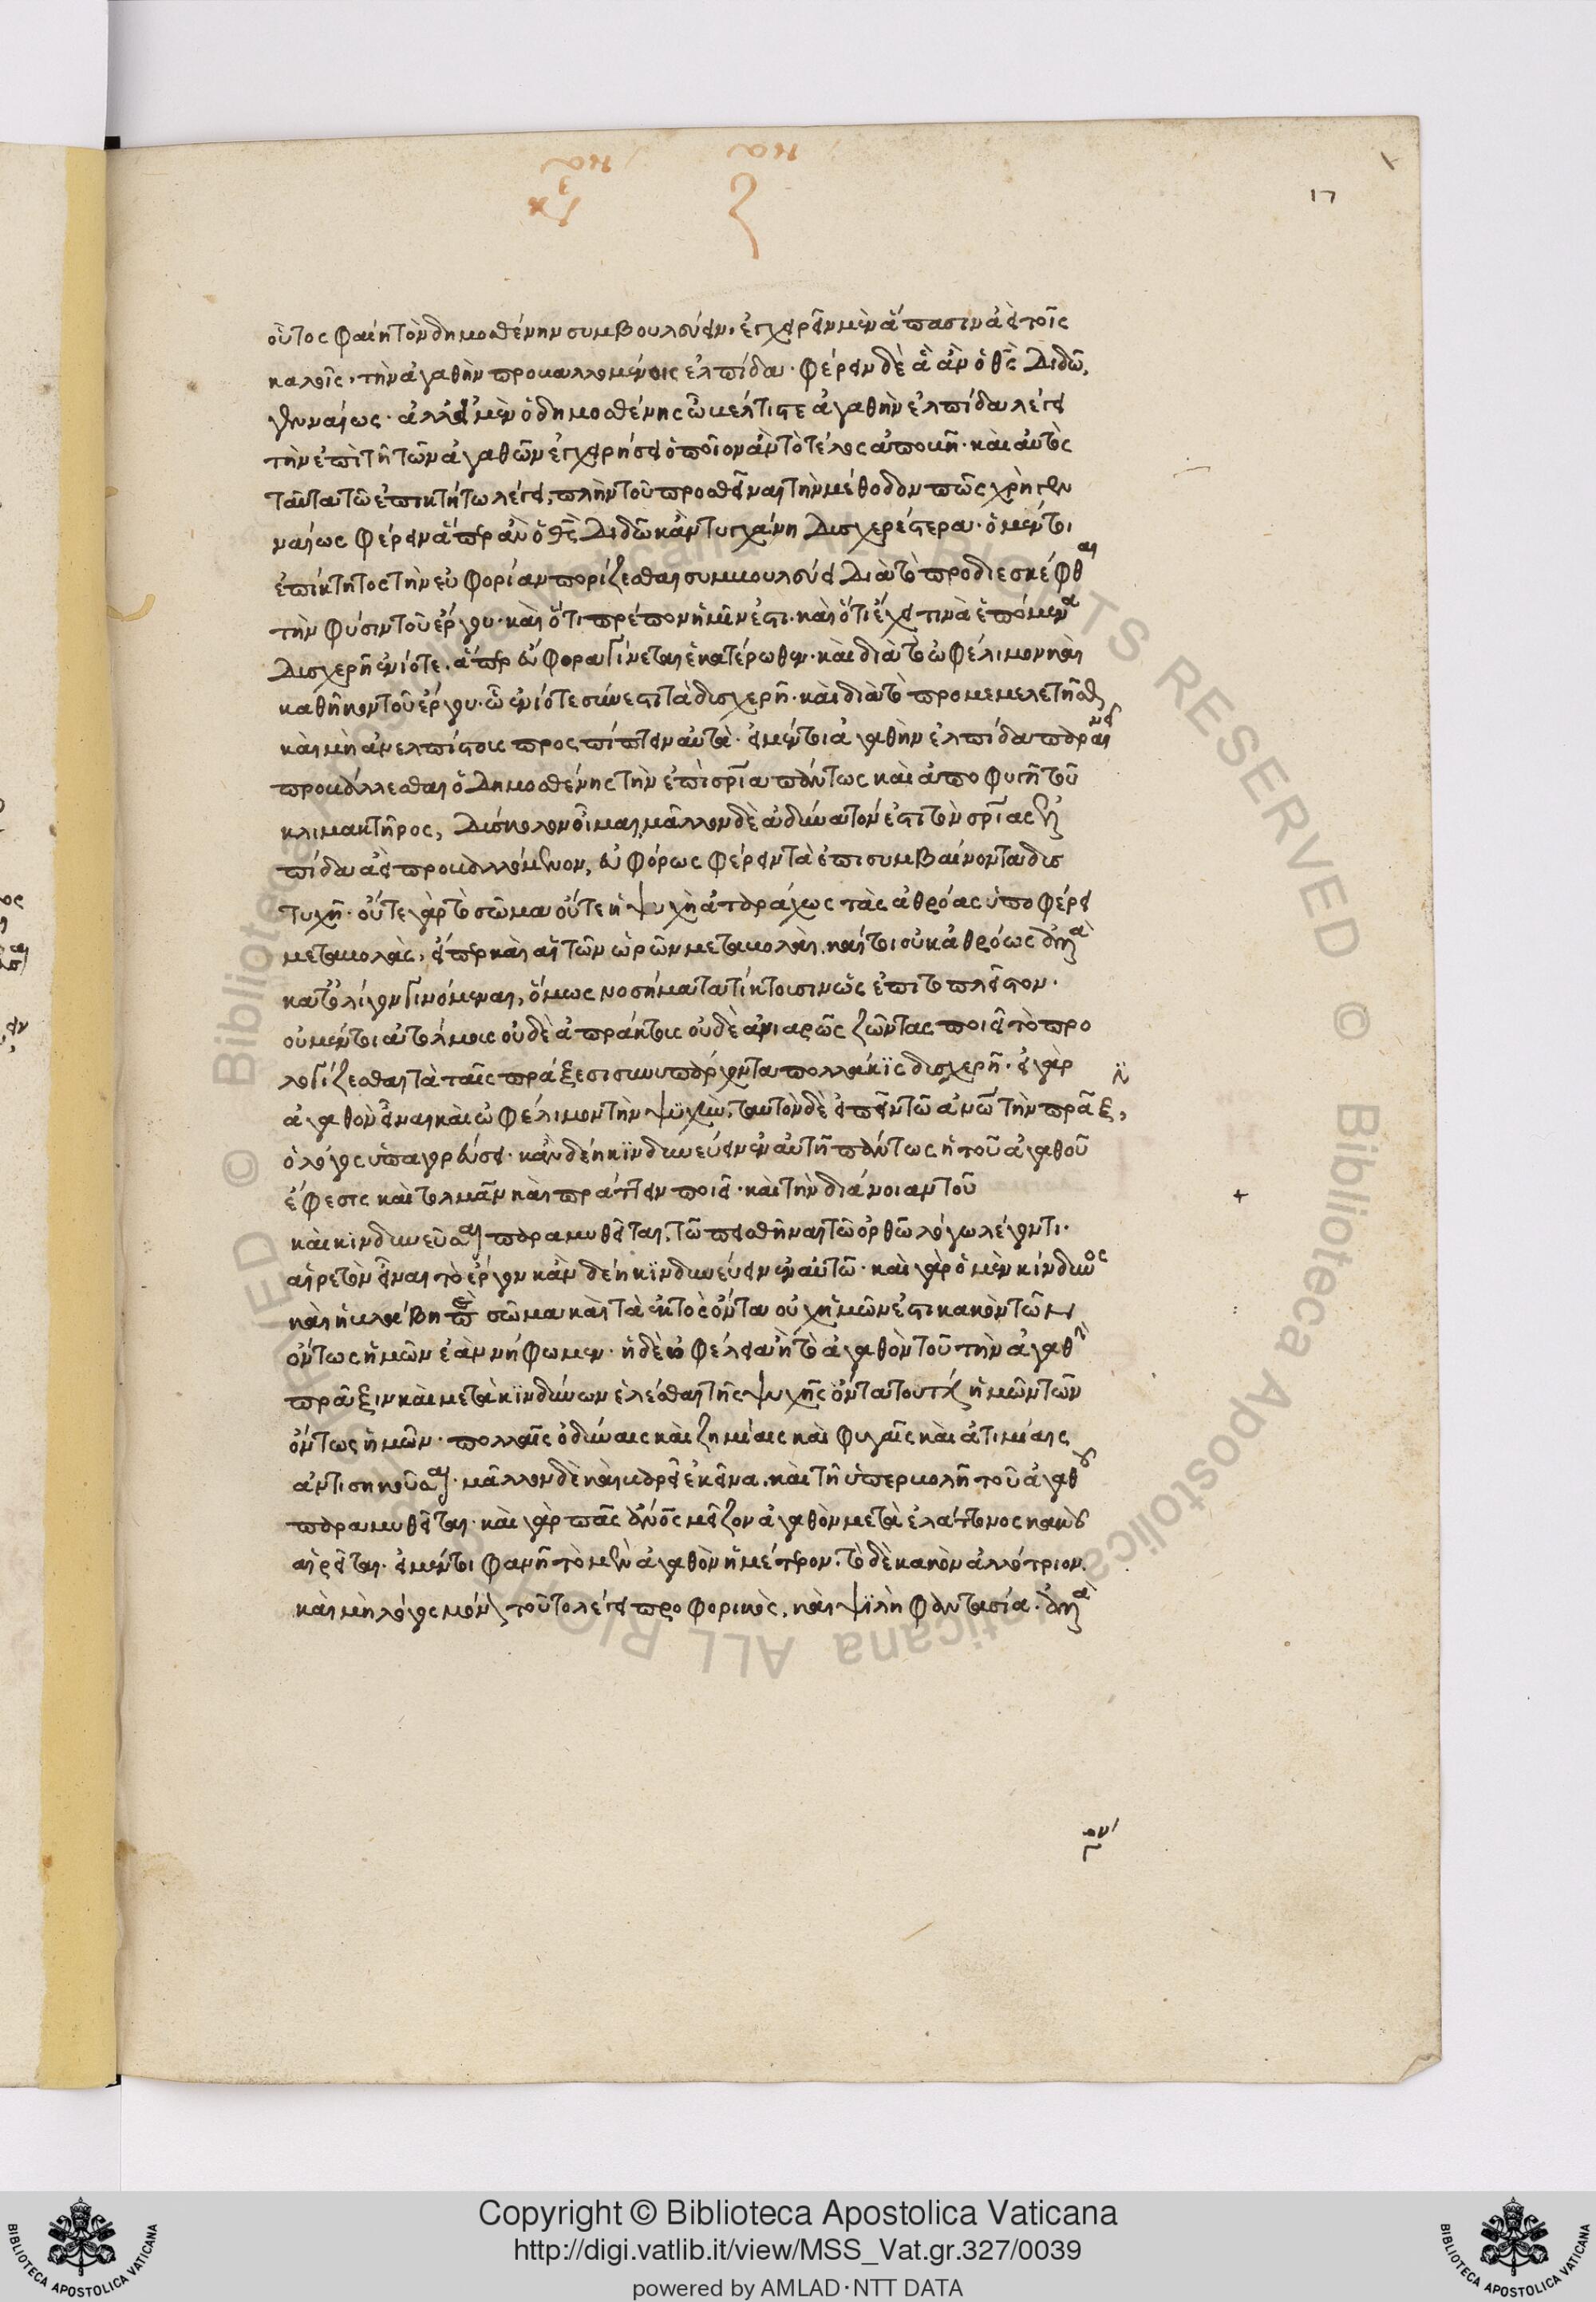 17
οὗτος φαίη τὸν δημοσθένην συμβουλεύειν. ἐγχειρεῖν μὲν ἅπασιν ἀεὶ τοῖς
καλοῖς, τὴν ἀγαθὴν προβαλλομένοις ἐλπίδα. φέρειν δὲ ἃ ἂν ὁ θεὸς διδῶ,
γενναίως. ἀλλ' εἰ μὲν ὁ δημοσθένης ὦ βέλτιστε ἀγαθὴν ἐλπίδα λέγει
τὴν ἐπὶ τῆ τῶν ἀγαθῶν ἐγχειρήσει ὁποῖον ἂν τὸ τέλος ἀποβῆ. καὶ αὐτὸς
ταῦτα τῶ ἐπικτήτω λέγει, πλὴν τοῦ προσθεῖναι τὴν μέθοδον πῶς χρὴ γεν
ναίως φέρειν ἅπερ ἂν ὁ θεὸς διδῶ κἂν τυγχάνη δυσχερέστερα. ὁ μέντοι
ἐπίκτητος τὴν εὐφορίαν πορίζεσθαι συμβουλεύει διὰ τὸ προδιεσκέφθαι
τὴν φύσιν τοῦ ἔργου. καὶ ὅτι πρέπον ἡμῖν ἐστι. καὶ ὅτι ἔχει τινὰ ἑπόμενα
δυσχερῆ ἐνίοτε. ἅπερ εὔφορα γίνεται ἑκατέρωθεν. καὶ διὰ τὸ ὠφέλιμον καὶ
καθῆκον τοῦ ἔργου. ὧ ἐνίοτε σύνεστι τὰ δυσχερῆ. καὶ διὰ τὸ προμεμελετῆσθαι
καὶ μὴ ἀνελπίστοις προσπίπτειν αὐτά. εἰ μέντοι ἀγαθὴν ἐλπίδα παραινεῖ
προβάλλεσθαι ὁ δημοσθένης τὴν ἐπὶ σωτηρία πάντως καὶ ἀποφυγῆ τοῦ
κλιμακτῆρος, δύσκολον οἶμαι, μᾶλλον δὲ ἀδύνατόν ἐστι τὸν σωτηρίας ἐλ
πίδα ἀεὶ προβαλλόμενον, εὐφόρως φέρειν τὰ ἐπισυμβαίνοντα δυσ
τυχῆ. οὔτε γὰρ τὸ σῶμα οὔτε ἡ ψυχὴ ἀταράχως τὰς ἀθρόας ὑποφέρει
μεταβολάς. εἴπερ καὶ αἱ τῶν ὡρῶν μεταβολαὶ. καίτοι οὐκ ἀθρόως ἀλλὰ
κατ' ὀλίγον γινόμεναι, ὅμως νοσήματα τίκτουσιν ὡς ἐπὶ τὸ πλεῖστον.
οὐ μέντοι ἀτόλμοις οὐδὲ ἀπράκτοις οὐδὲ ἀνιαρῶς ζῶντας ποιεῖ τὸ προ
λογίζεσθαι τὰ ταῖς πράξεσι συνυπάρχοντα πολλάκις δυσχερῆ. εἰ γὰρ
ἀγαθὸν εἶναι καὶ ὠφέλιμον τὴν ψυχὴν, ταυτὸν δὲ εἰπεῖν τῶ ἀνω τὴν πρᾶξ,
ὁ λόγος ὑπαγορεύσει. κἂν δέη κινδυνεύειν ἐν αὐτῆ πάντως ἡ τοῦ ἀγαθοῦ
ἔφεσις καὶ τολμᾶν καὶ πράττειν ποιεῖ. καὶ τὴν διάνοιαν τοῦ
καὶ κινδυνεῦσαι παραμυθεῖται, τῶ πεισθῆναι τῶ ὀρθῶ λόγω λέγοντι.
αἱρετὸν εἶναι τὸ ἔργον κἂν δέη κινδυνεύειν ἐν αὐτῶ. καὶ γὰρ ὁ μὲν κίνδυνος
καὶ ἡ βλάβη περὶ σῶμα καὶ τὰ ἐκτὸς ὄντα οὐχ ἡμῶν ἐστι κακὸν τῶν
ὄντως ἡμῶν ἐὰν νήφωμεν. ἡ δὲ ὠφέλεια ἢ τὸ ἀγαθὸν τοῦ τὴν ἀγαθὴν
πρᾶξιν καὶ μετὰ κινδύνων ἑλέσθαι τῆς ψυχῆς ὄντα τουτέστιν ἡμῶν τῶν
ὄντως ἡμῶν. πολλαῖς ὀδύναις καὶ ζημίαις καὶ φυγαῖς καὶ ἀτιμίαις
ἀντισηκοῦσαι. μᾶλλον δὲ καὶ παρεῖ ἐκεῖνα. καὶ τῆ ὑπερβολῆ τοῦ ἀγαθοῦ
παραμυθεῖται. καὶ γὰρ πᾶς ἄνθρωπος μεῖζον ἀγαθὸν μετὰ ἐλάττονος κακοῦ
αἱρεῖται. εἰ μέντοι φανῆ τὸ μὲν ἀγαθὸν ἡμέτερον. τὸ δὲ κακὸν ἀλλότριον.
καὶ μὴ λόγος μόνον τοῦτο λέγει προφορικὸς. καὶ ψιλὴ φαντασία. ἀλλὰ
Copyright © Biblioteca Apostolica Vaticana
http://digi.vatlib.it/view/MSS_Vat.gr.327/0039
powered by AMLAD·NTT DATA